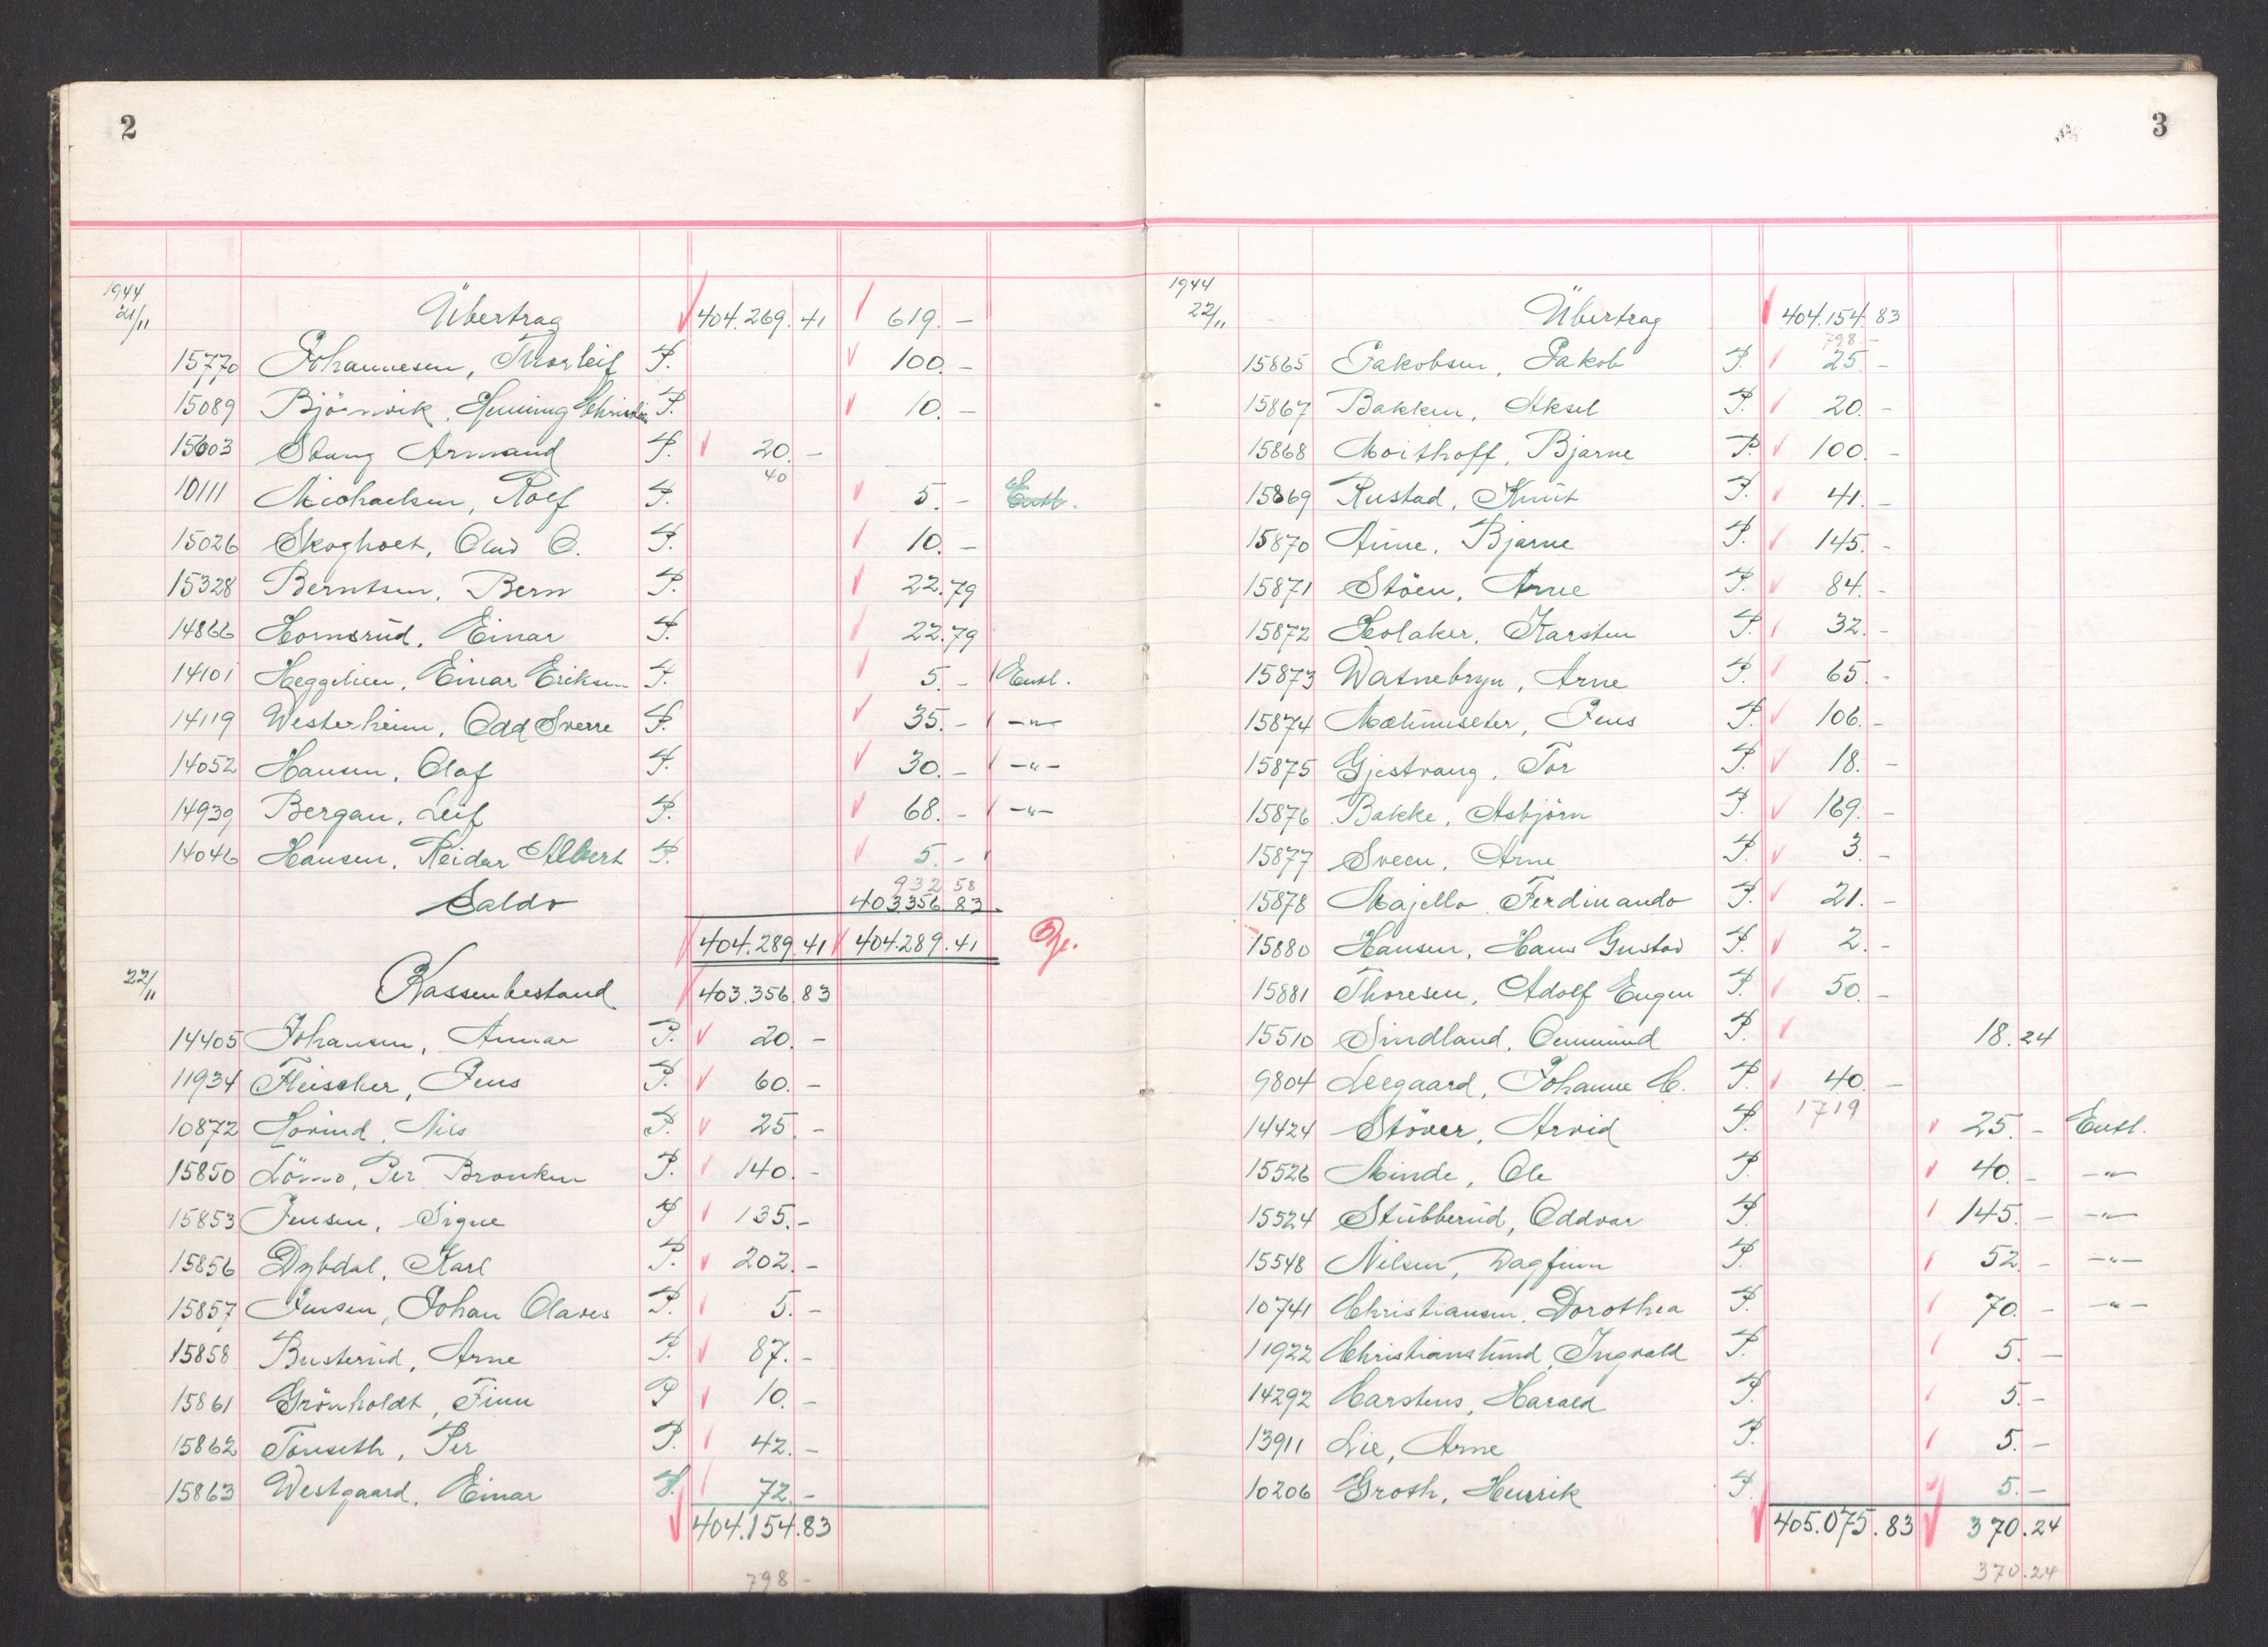 2
1944
21/11 Übertrag 404.269.41 619.-
15770 Johannesen, Thorleif P. 100.-
15089 Björnvik, Henning Christian P. 10.-
15603 Stang Armand P. 20.-
40
10111 Michaelsen, Rolf P. 5.- Entl.
15026 Skogholt, Olav O. P. 10.-
15328 Berntsen, Bern P. 22.79
14866 Hornsrud, Einar P. 22.79
14101 Heggelien, Einar Eriksen P. 5.- Entl.
14119 Westerheim, Odd Sverre P. 35.- -"-
14052 Hansen, Olaf P. 30.- -"-
14939 Bergan, Leif P. 68.- -"-
14046 Hansen, Reidar Albert P. 5.-
932 58
Saldo 403.356 83
404.289.41 404.289.41
22/11 Kassenbestand 403.356.83
14405 Johansen, Annar P. 20.-
11934 Fleischer, Jens P. 60.-
10872 Hovind, Nils P. 25.-
15850 Lömo, Per Bronken P. 140.-
15853 Jensen, Signe P 135.-
15856 Dybdal, Karl P. 202.-
15857 Jensen, Johan Olaves P. 5.-
15858 Busterud, Arne P. 87.-
15861 Grönholdt, Finn P 10.-
15862 Tonseth, Per P. 42.-
15863 Westgaard, Einar P. 72.-
404.154.83
798 -
3
1944
22/11 Übertrag 404.154.83
798.-
15865 Jakobsen, Jakob P. 25.-
15867 Bakken, Aksel P. 20.-
15868 Moithoff, Bjarne P. 100.-
15869 Rustad, Knut P. 41.-
15870 Aune, Bjarne P. 145.-
15871 Stöen, Arne P. 84.-
15872 Holaker, Karsten P. 32.-
15873 Watnebryn, Arne P. 65.-
15874 Jens P. 106.-
15875 Gjestvang, Tor P. 18.-
15876 Bakke, Asbjörn P. 169.-
15877 Sveen, Arne P. 3.-
15878 Majello Ferdinando P. 21.-
15880 Hansen, Hans Gustav P. 2.-
15881 Thoresen, Adolf Eugen P. 50.-
15510 Sindland, Ommund P. 18.24
9804 Leegaard, Johanne C. P. 40.-
1719
14424 Stöver, Arvid P. 25.- Entl.
15526 Minde, Ole P. 40.- -"-
15524 Stubberud, Oddvar P. 145.- -"-
15548 Nilsen, Dagfinn P. 52.- -"-
10741 Christiansen, Dorothea P. 70.- -"-
11922 Christianslund, Ingvald P. 5.-
14292 Carstens, Harald P. 5.-
13911 Lie, Arne P. 5.-
10206 Groth, Henrik P. 5.-
405.075.83 370.24
370.24